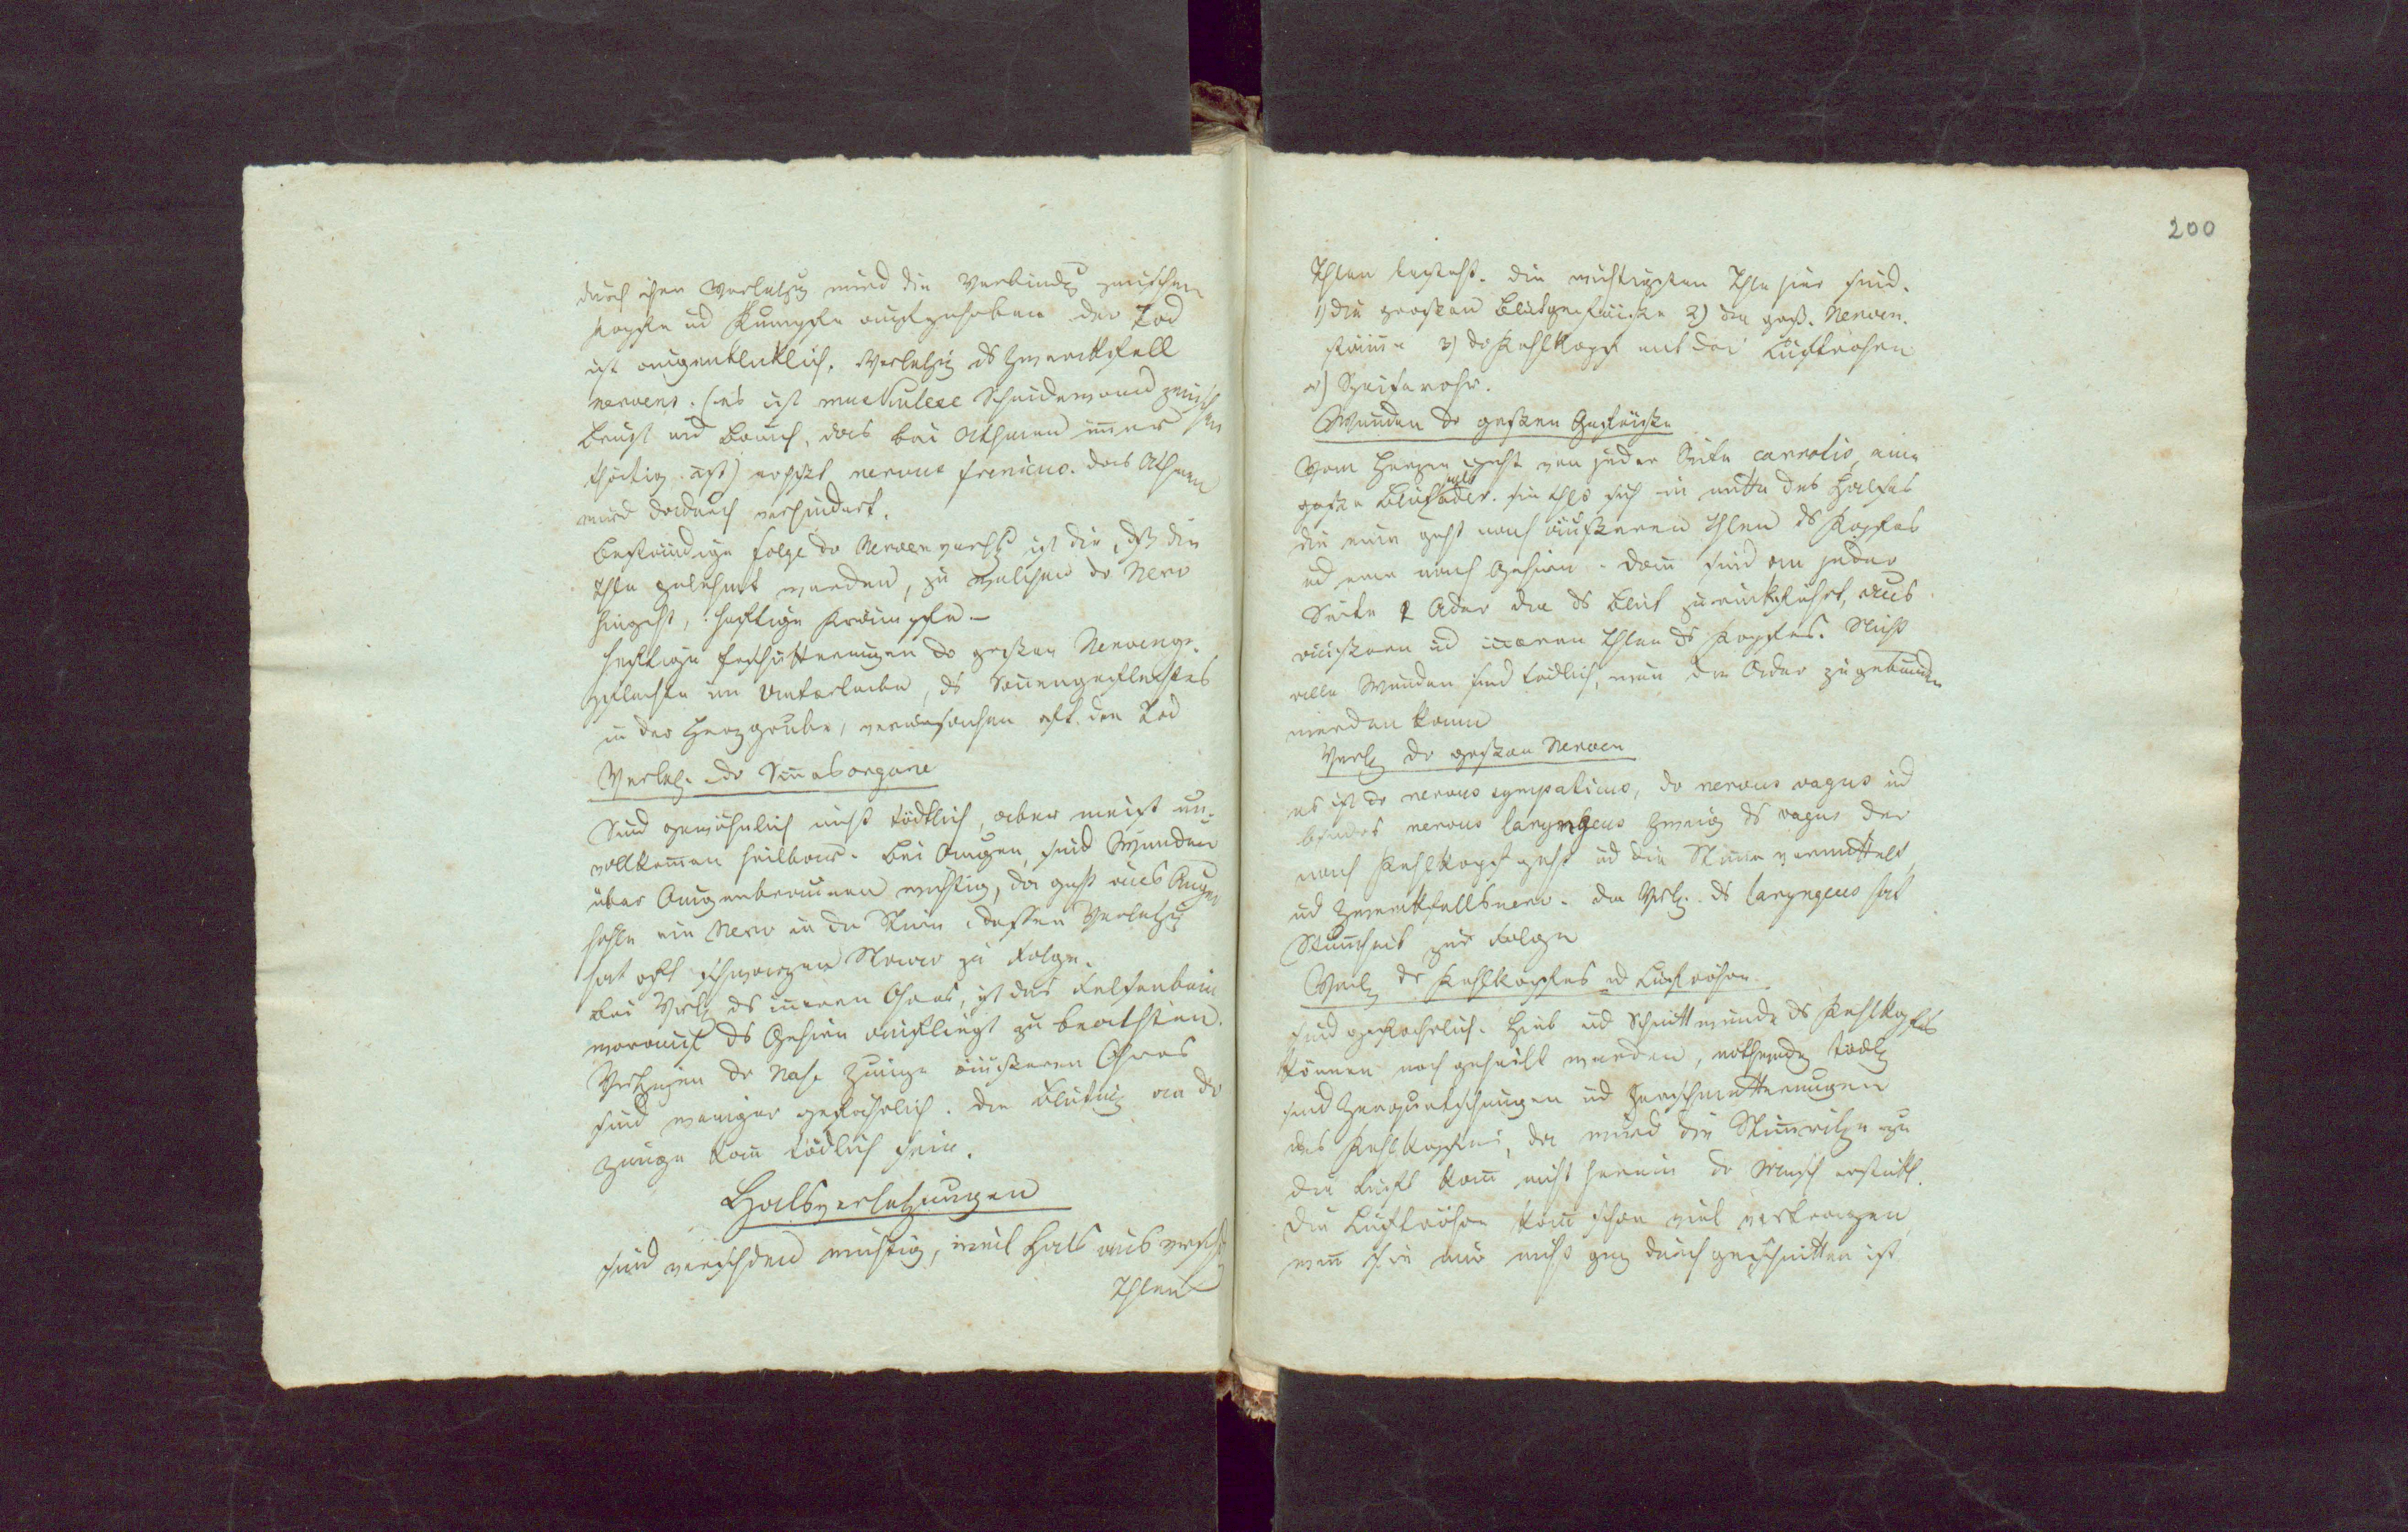 durch ihre Verletzg wird die Verbindg zwischen
Kopfe ud Rumpfe aufgehoben der Tod
ist augenbliklich. Verletzg ds Zwerckfell
nervens. (es ist muskulere Scheidewand zwischen
Brust und Bauch, das bei Athmen immer
thätig ist) nervus frenicus. das Athmen
wird dadurch verhindert.
Beständige Folge dr Nervenverltzg ist die, dß die
Thle gelähmt werden, zu welchen dr Nerv
hingeht, heftige Krämpfe —
heftige Erschütterungen dr großen Nervenge-
flechte im Unterleibe, ds Sonnengeflechtes
in der Herzgrube, verursachen oft den Tod
Verletz. dr Sinnesorgane
Sind gewöhnlich nicht tödtlich, aber meist un-
vollkommen heilbar. bei Augen, sind Wunden
über Augenbraunen wichtig, da geht aus Augen
hohle ein Nerv in die Stirn, dessen Verletzg
hat oft schwarzen Starr zu Folge.
bei Verltz ds inneren Ohres, ist das Felsenbein
worauf ds Gehirn aufliegt zu beachten.
Verltzgen dr Nase Zunge äußeren Ohres
sind weniger gefährlich. die Blutung an dr
Zunge kann tödlich sein.
Halsverletzungen
sind verschden wichtig, weil Hals aus versch
Thlen
200
Thlen besteht. die wichtigsten Thle hier sind.
1) die großen Blutgefäße 2) die groß. Nerven.
stämme 3) dr Kehlkopf mit der Luftröhre
4) Speiserohr.
Wunden dr großen Gefäße
Vom Herzen geht von jeder Seite carrotis, eine
große Blutader. sie thlt sich in mitte des Halses
die eine geht nach äußeren Thlen ds Kopfes
ud eine nach Gehirn. dann sind an jeder
Seite 2 Ader die ds Blut zurückführt, aus
äußern ud inneren Thlen ds Kopfes. Nicht
alle Wunden sind tödlich, wenn die Ader zugebunden
werden kann
Verltz dr großen Nerven
es ist dr nervus sympaticus, dr nervus vagus ud
bsonders nervus laryngeus Zweig ds vagus der
nach Kehlkopf geht ud die Stimme vermittelt,
ud Zwerckfellsnerv. die Vrltz. ds laryngeus hat
Stummheit zur Folge
Verltz ds Kehlkopfes ud Luftröhre.
sind gefährlich. Hieb ud Schnittwunde ds Kehlkopfes
können noch geheilt werden, nothwendg tödtl
sind Zerquetschungen ud Zerschmetterungen
des Kehlkopfes, da wird die Stimmritze zu
die Luft kann nicht herein dr Mensch erstickt.
die Luftröhre kann schon viel vertragen,
wenn sie nur nicht gnz durchgeschnitten ist